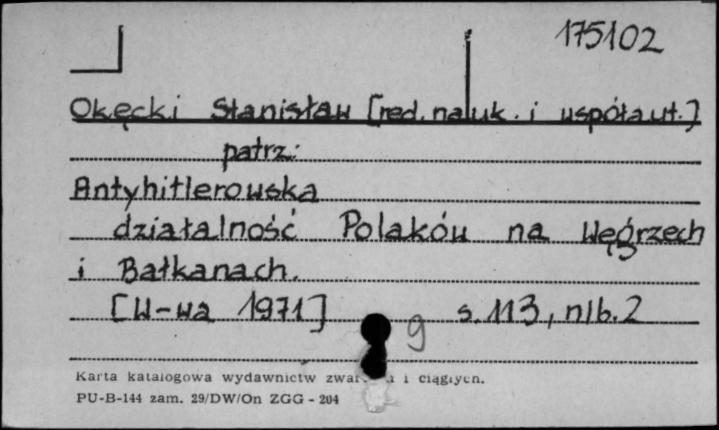 175102
Okęcki Stanisław [red. nauk. i współaut.]
patrz:
Antyhitlerowska
działalność Polaków na Węgrzech
i Bałkanach.
[W-wa 1971] s. 113, nlb. 2
9
Karta katalogowa wydawnictw i ciągłych.
PU-B-144 zam. 29/DW/On ZGG - 204